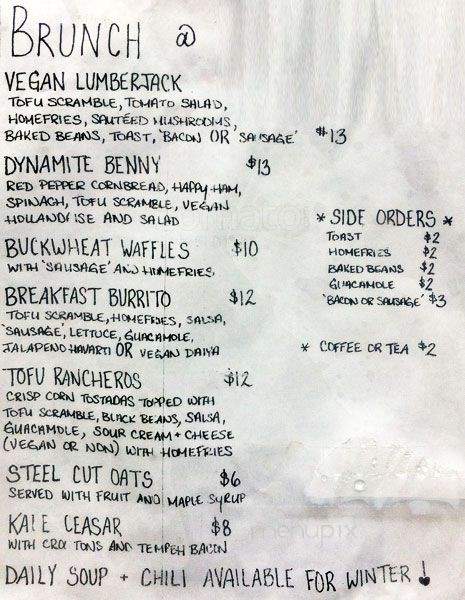 BRUNCH @
VEGAN LUMBERJACK
TOFU SCRAMBLE, TOMATO SALAD,
HOMEFRIES, SAUTÉED MUSHROOMS,
BAKED BEANS, TOAST, 'BACON OR 'SAUSAGE' $13
DYNAMITE BENNY $13
RED PEPPER CORNBREAD, HAPPY HAM,
SPINACH, TOFU SCRAMBLE, VEGAN
HOLLANDAISE AND SALAD
BUCKWHEAT WAFFLES $10
WITH 'SAUSAGE' AND HOMEFRIES
BREAKFAST BURRITO $12
TOFU SCRAMBLE, HOMEFRIES, SALSA,
'SAUSAGE', LETTUCE, GUACAMOLE,
JALAPENO HAVARTI OR VEGAN DAIYA
TOFU RANCHEROS $12
CRISP CORN TOSTADAS TOPPED WITH
TOFU SCRAMBLE, BLACK BEANS, SALSA,
GUACAMOLE, SOUR CREAM + CHEESE
(VEGAN OR NON) WITH HOMEFRIES
STEEL CUT OATS $6
SERVED WITH FRUIT AND MAPLE SYRUP
KALE CEASAR $8
WITH CROUTONS AND TEMPEH BACON
DAILY SOUP + CHILI AVAILABLE FOR WINTER!
* SIDE ORDERS *
TOAST $2
HOMEFRIES $2
BAKED BEANS $2
GUACAMOLE $2
'BACON OR SAUSAGE' $3
* COFFEE OR TEA $2
menupix